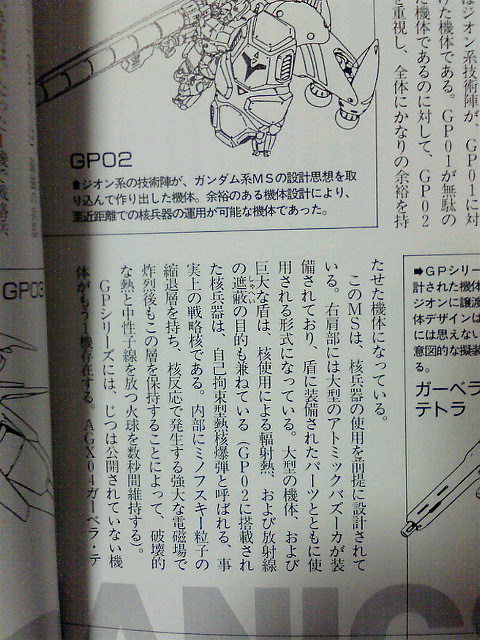 ジオン系技術陣が、GP01に対
けた機体である。GP01が無駄の
た機体であるのに対して、GP02
を重視し、全体にかなりの余裕を持
GP02
⬆ジオン系の技術陣が、ガンダム系MSの設計思想を取
り込んで作り出した機体。余裕のある機体設計により、
至近距離での核兵器の運用が可能な機体であった。
たせた機体になっている。
このMSは、核兵器の使用を前提に設計されて
いる。右肩部には大型のアトミックバズーカが装
備されており、盾に装備されたパーツとともに使
用される形式になっている。大型の機体、および
巨大な盾は、核使用による輻射熱、および放射線
の遮蔽の目的も兼ねている（GP02に搭載され
た核兵器は、自己拘束型熱核爆弾と呼ばれる、事
実上の戦略核である。内部にミノフスキー粒子の
縮退層を持ち、核反応で発生する強大な電磁場で
炸裂後もこの層を保持することによって、破壊的
な熱と中性子線を放つ火球を数秒間維持する）。
GPシリーズには、じつは公開されていない機
体がもう1機存在する。AGX04ガーベラ・テ
➡GPシリー
計された機体
ジオンに譲渡
体デザインは
には思えない
意図的な擬装
る。
ガーベラ
テトラ
GP03
ANICS